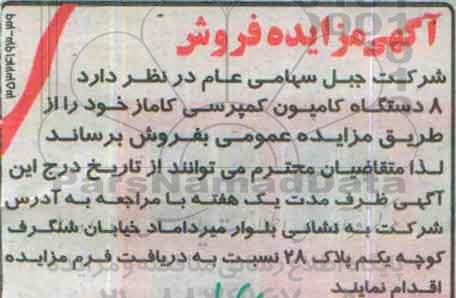 آگهی مزایده فروش
شرکت جبل سهامی عام در نظر دارد
۸ دستگاه کامیون کمپرسی کاماز خود را از
طریق مزایده عمومی بفروش برساند
لذا متقاضیان محترم می توانند از تاریخ درج این
آگهی ظرف مدت یک هفته با مراجعه به آدرس
شرکت به نشانی بلوار میرداماد خیابان شنگرف
کوچه یکم پلاک ۲۸ نسبت به دریافت فرم مزایده
اقدام نمایند
ParsNamadData